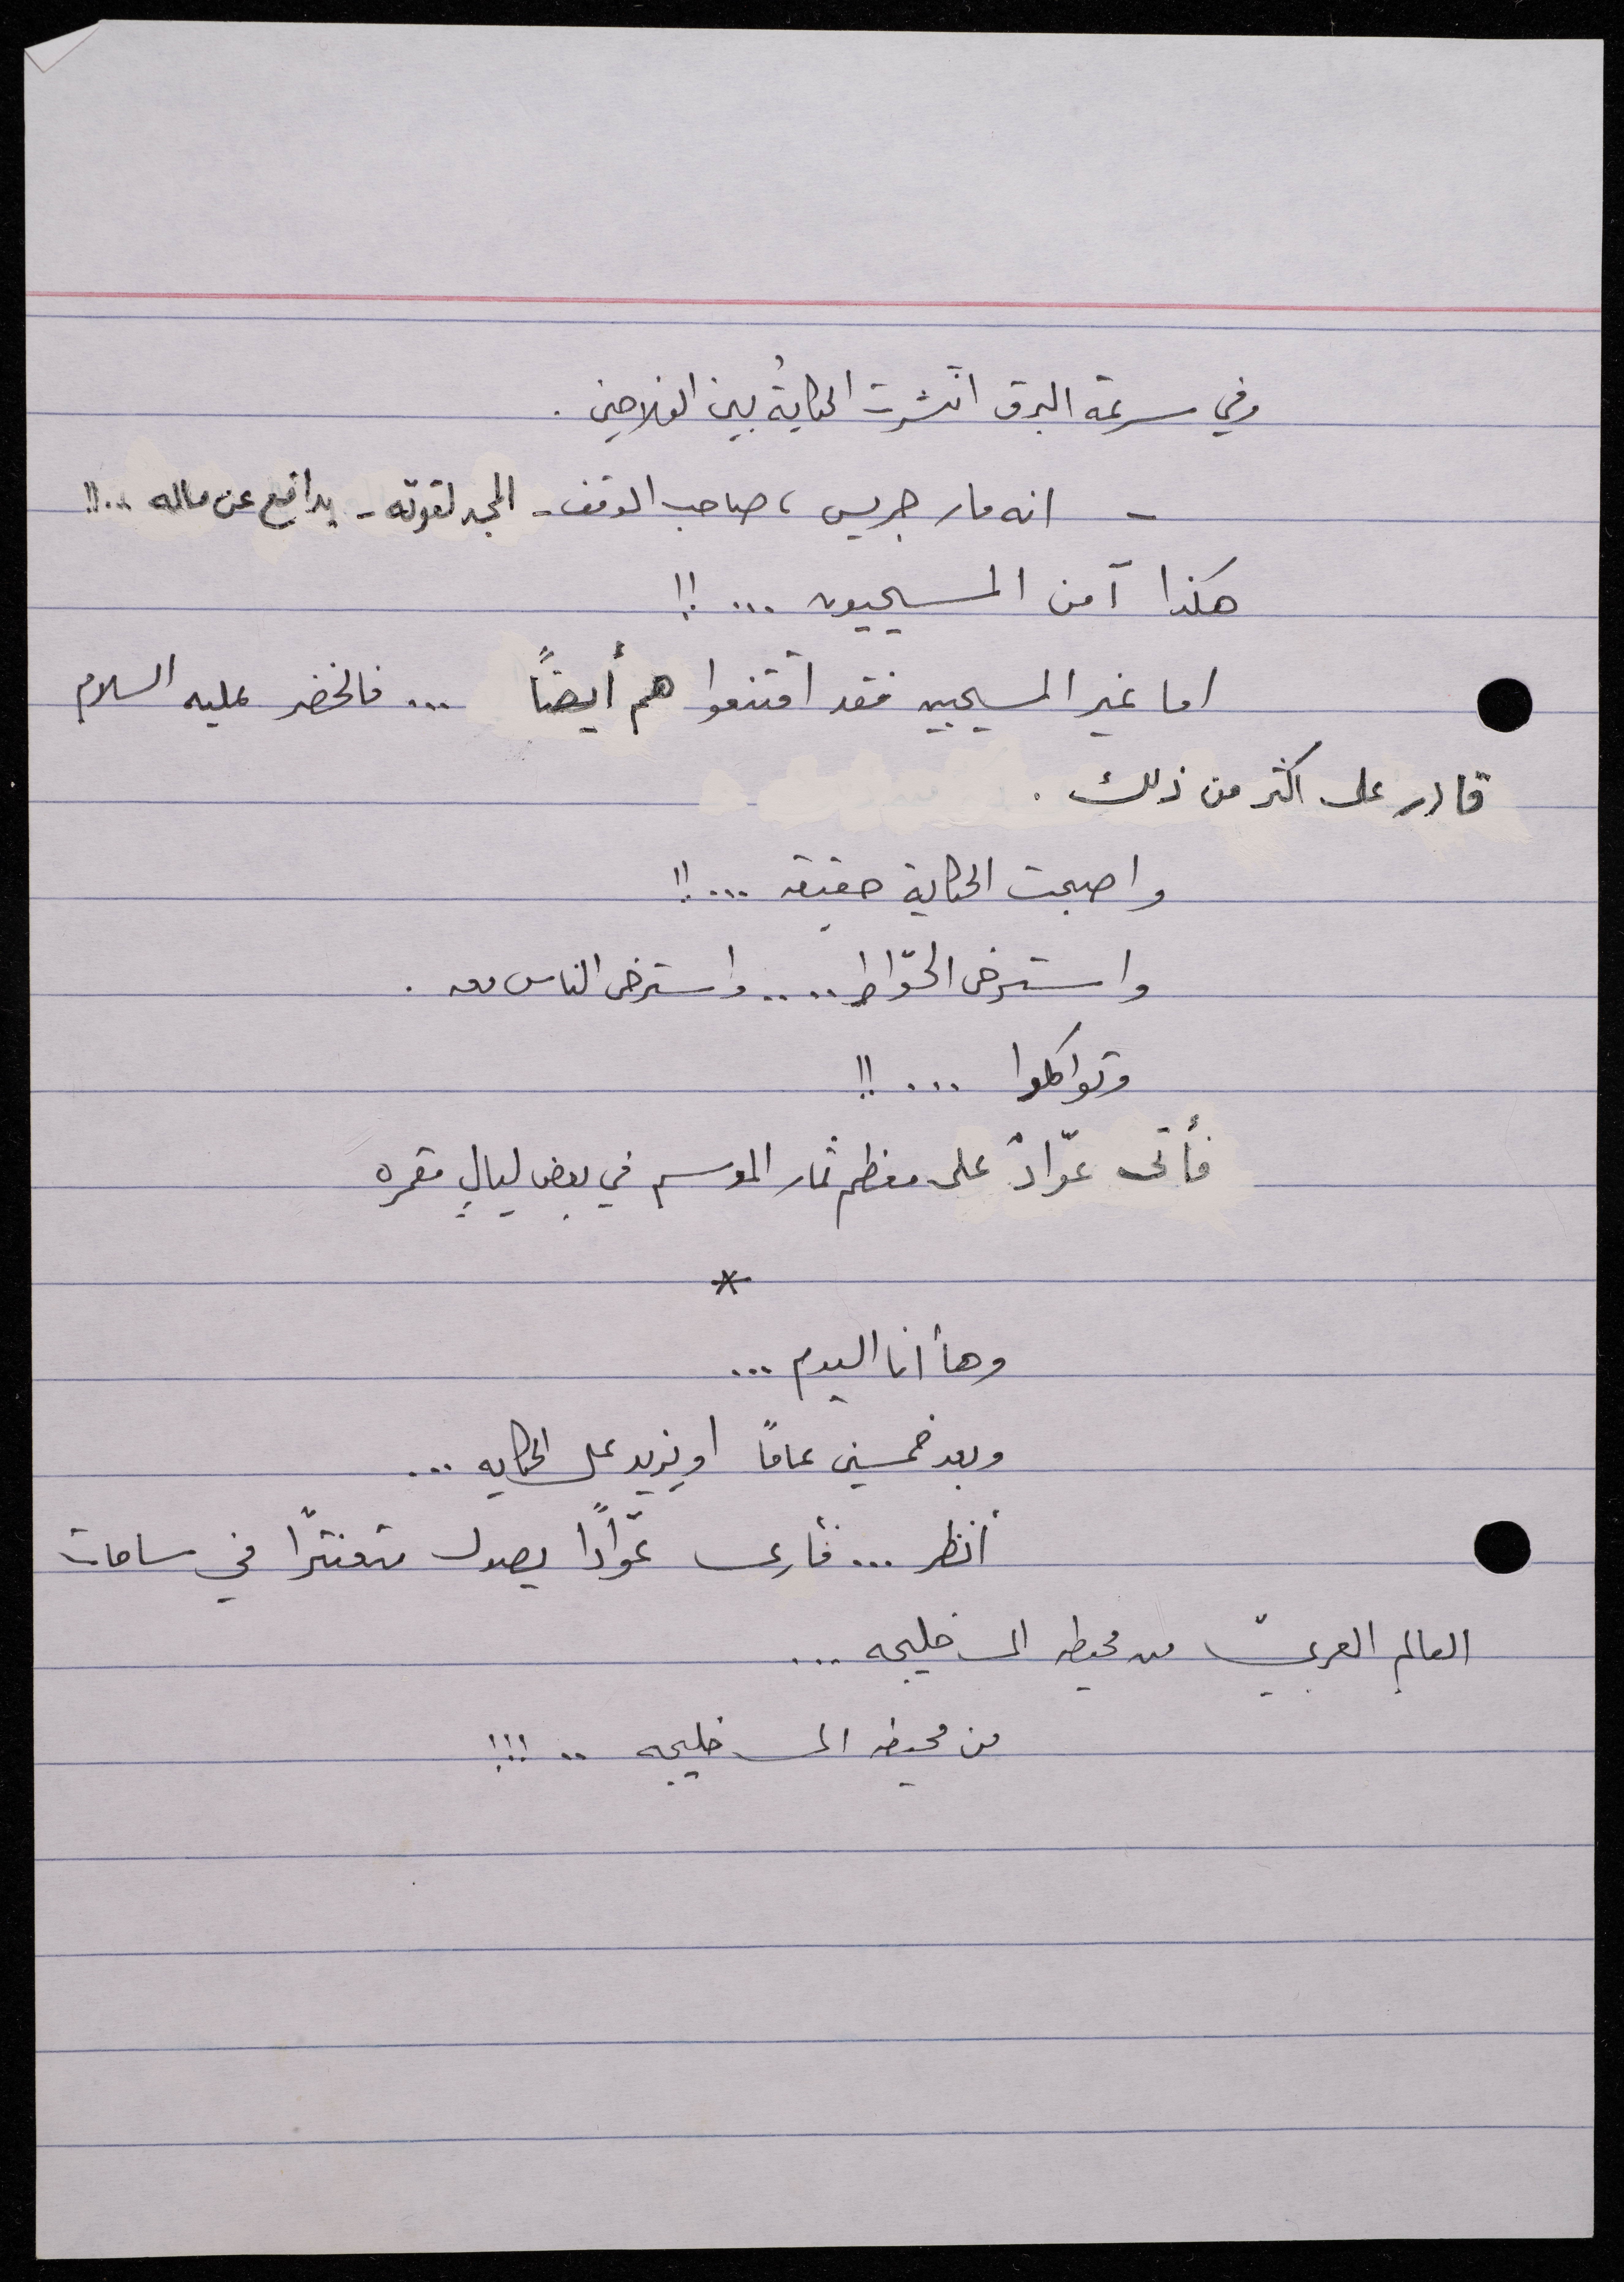 وفي سرعة البرق انتشرت الحكايةُ بين الفلاحين .
- انه مار جريس ، صاحب الوقف - المجد لقوته - يدافع عن ماله ..!!
هكذا آمن المسيحيون ... !!
اما غير المسيحيين فقد اقتنعوا هم أيضاً ... فالخضر عليه السلام
قادر على اكثر من ذلك .
واصبحت الحكاية حقيقه ... !!
واسترخى الحوّاط .... واسترخى الناس معه .
وتواكلوا ... !!
فأتى عوّادٌ على معظم ثمار الموسم في بعض ليالٍ مقمره
*
وها أنا اليوم ...
وبعد خمسين عاماً او يزيد على الحكايه ...
أنظر ... فأرى عوّاداً يصول متعنتراً في ساحات
العالم العربيّ من محيطه الى خليجه ...
من محيطه الى خليجه .. !!!